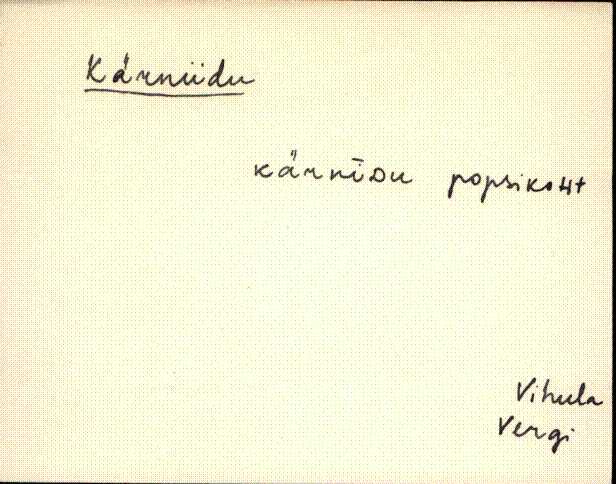 Kärniidu
kärnīᴅu popsikott
Vihula
Vergi